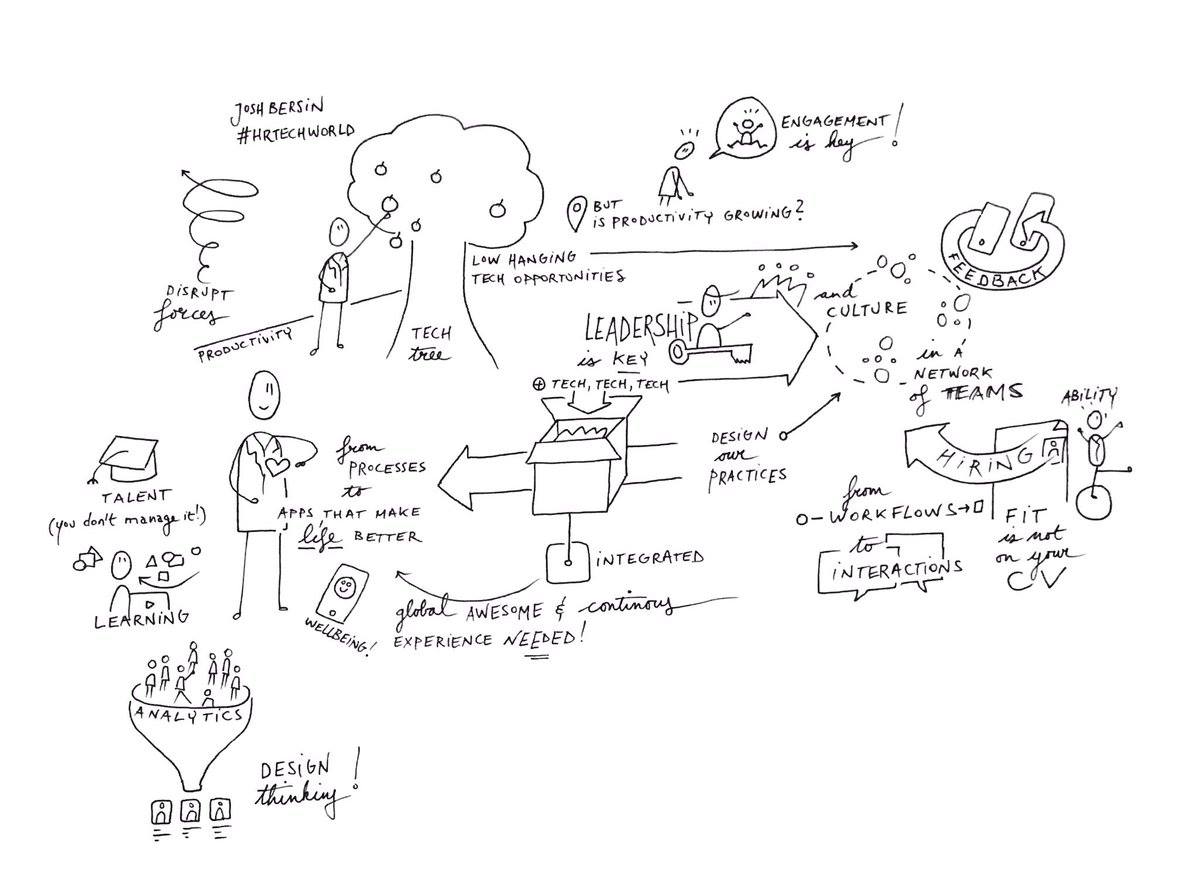 JOSH BERSIN
#HRTECHWORLD
ENGAGEMENT
is key!
BUT
IS PRODUCTIVITY GROWING?
LOW HANGING
TECH OPPORTUNITIES
DISRUPT
forces
PRODUCTIVITY
TECH
tree
FEEDBACK
LEADERSHIP
is KEY
⊕ TECH, TECH, TECH
and
CULTURE
in A
NETWORK
of TEAMS
ABILITY
HIRING
DESIGN
our
PRACTICES
from
WORKFLOWS
to
INTERACTIONS
FIT
is not
on your
CV
from
PROCESSES
to
APPS THAT MAKE
life BETTER
TALENT
(you don't manage it!)
LEARNING
INTEGRATED
WELLBEING!
global AWESOME & continous
EXPERIENCE NEEDED!
ANALYTICS
DESIGN
thinking!